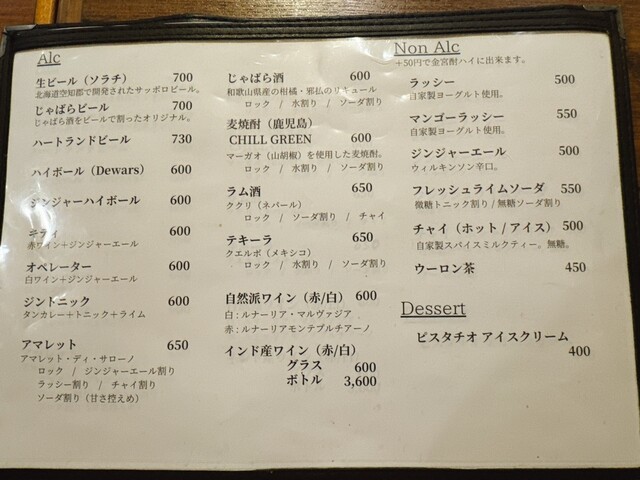 Alc
生ビール（ソラチ） 700
北海道空知郡で開発されたサッポロビール。
じゃばらビール 700
じゃばら酒をビールで割ったオリジナル。
ハートランドビール 730
ハイボール（Dewars） 600
ジンジャーハイボール 600
キティ 600
赤ワイン＋ジンジャーエール
オペレーター 600
白ワイン＋ジンジャーエール
ジントニック 600
タンカレー＋トニック＋ライム
アマレット 650
アマレット・ディ・サローノ
ロック / ジンジャーエール割り
ラッシー割り / チャイ割り
ソーダ割り（甘さ控えめ）
じゃばら酒 600
和歌山県産の柑橘・邪払のリキュール
ロック / 水割り / ソーダ割り
麦焼酎（鹿児島）
CHILL GREEN 600
マーガオ（山胡椒）を使用した麦焼酎。
ロック / 水割り / ソーダ割り
ラム酒 650
ククリ（ネパール）
ロック / ソーダ割り / チャイ
テキーラ 650
クエルボ（メキシコ）
ロック / 水割り / ソーダ割り
自然派ワイン（赤/白） 600
白：ルナーリア・マルヴァジア
赤：ルナーリアモンテプルチアーノ
インド産ワイン（赤/白）
グラス 600
ボトル 3,600
Non Alc
＋50円で金宮酎ハイに出来ます。
ラッシー 500
自家製ヨーグルト使用。
マンゴーラッシー 550
自家製ヨーグルト使用。
ジンジャーエール 500
ウィルキンソン辛口。
フレッシュライムソーダ 550
微糖トニック割り / 無糖ソーダ割り
チャイ（ホット / アイス） 500
自家製スパイスミルクティー。無糖。
ウーロン茶 450
Dessert
ピスタチオ アイスクリーム
400